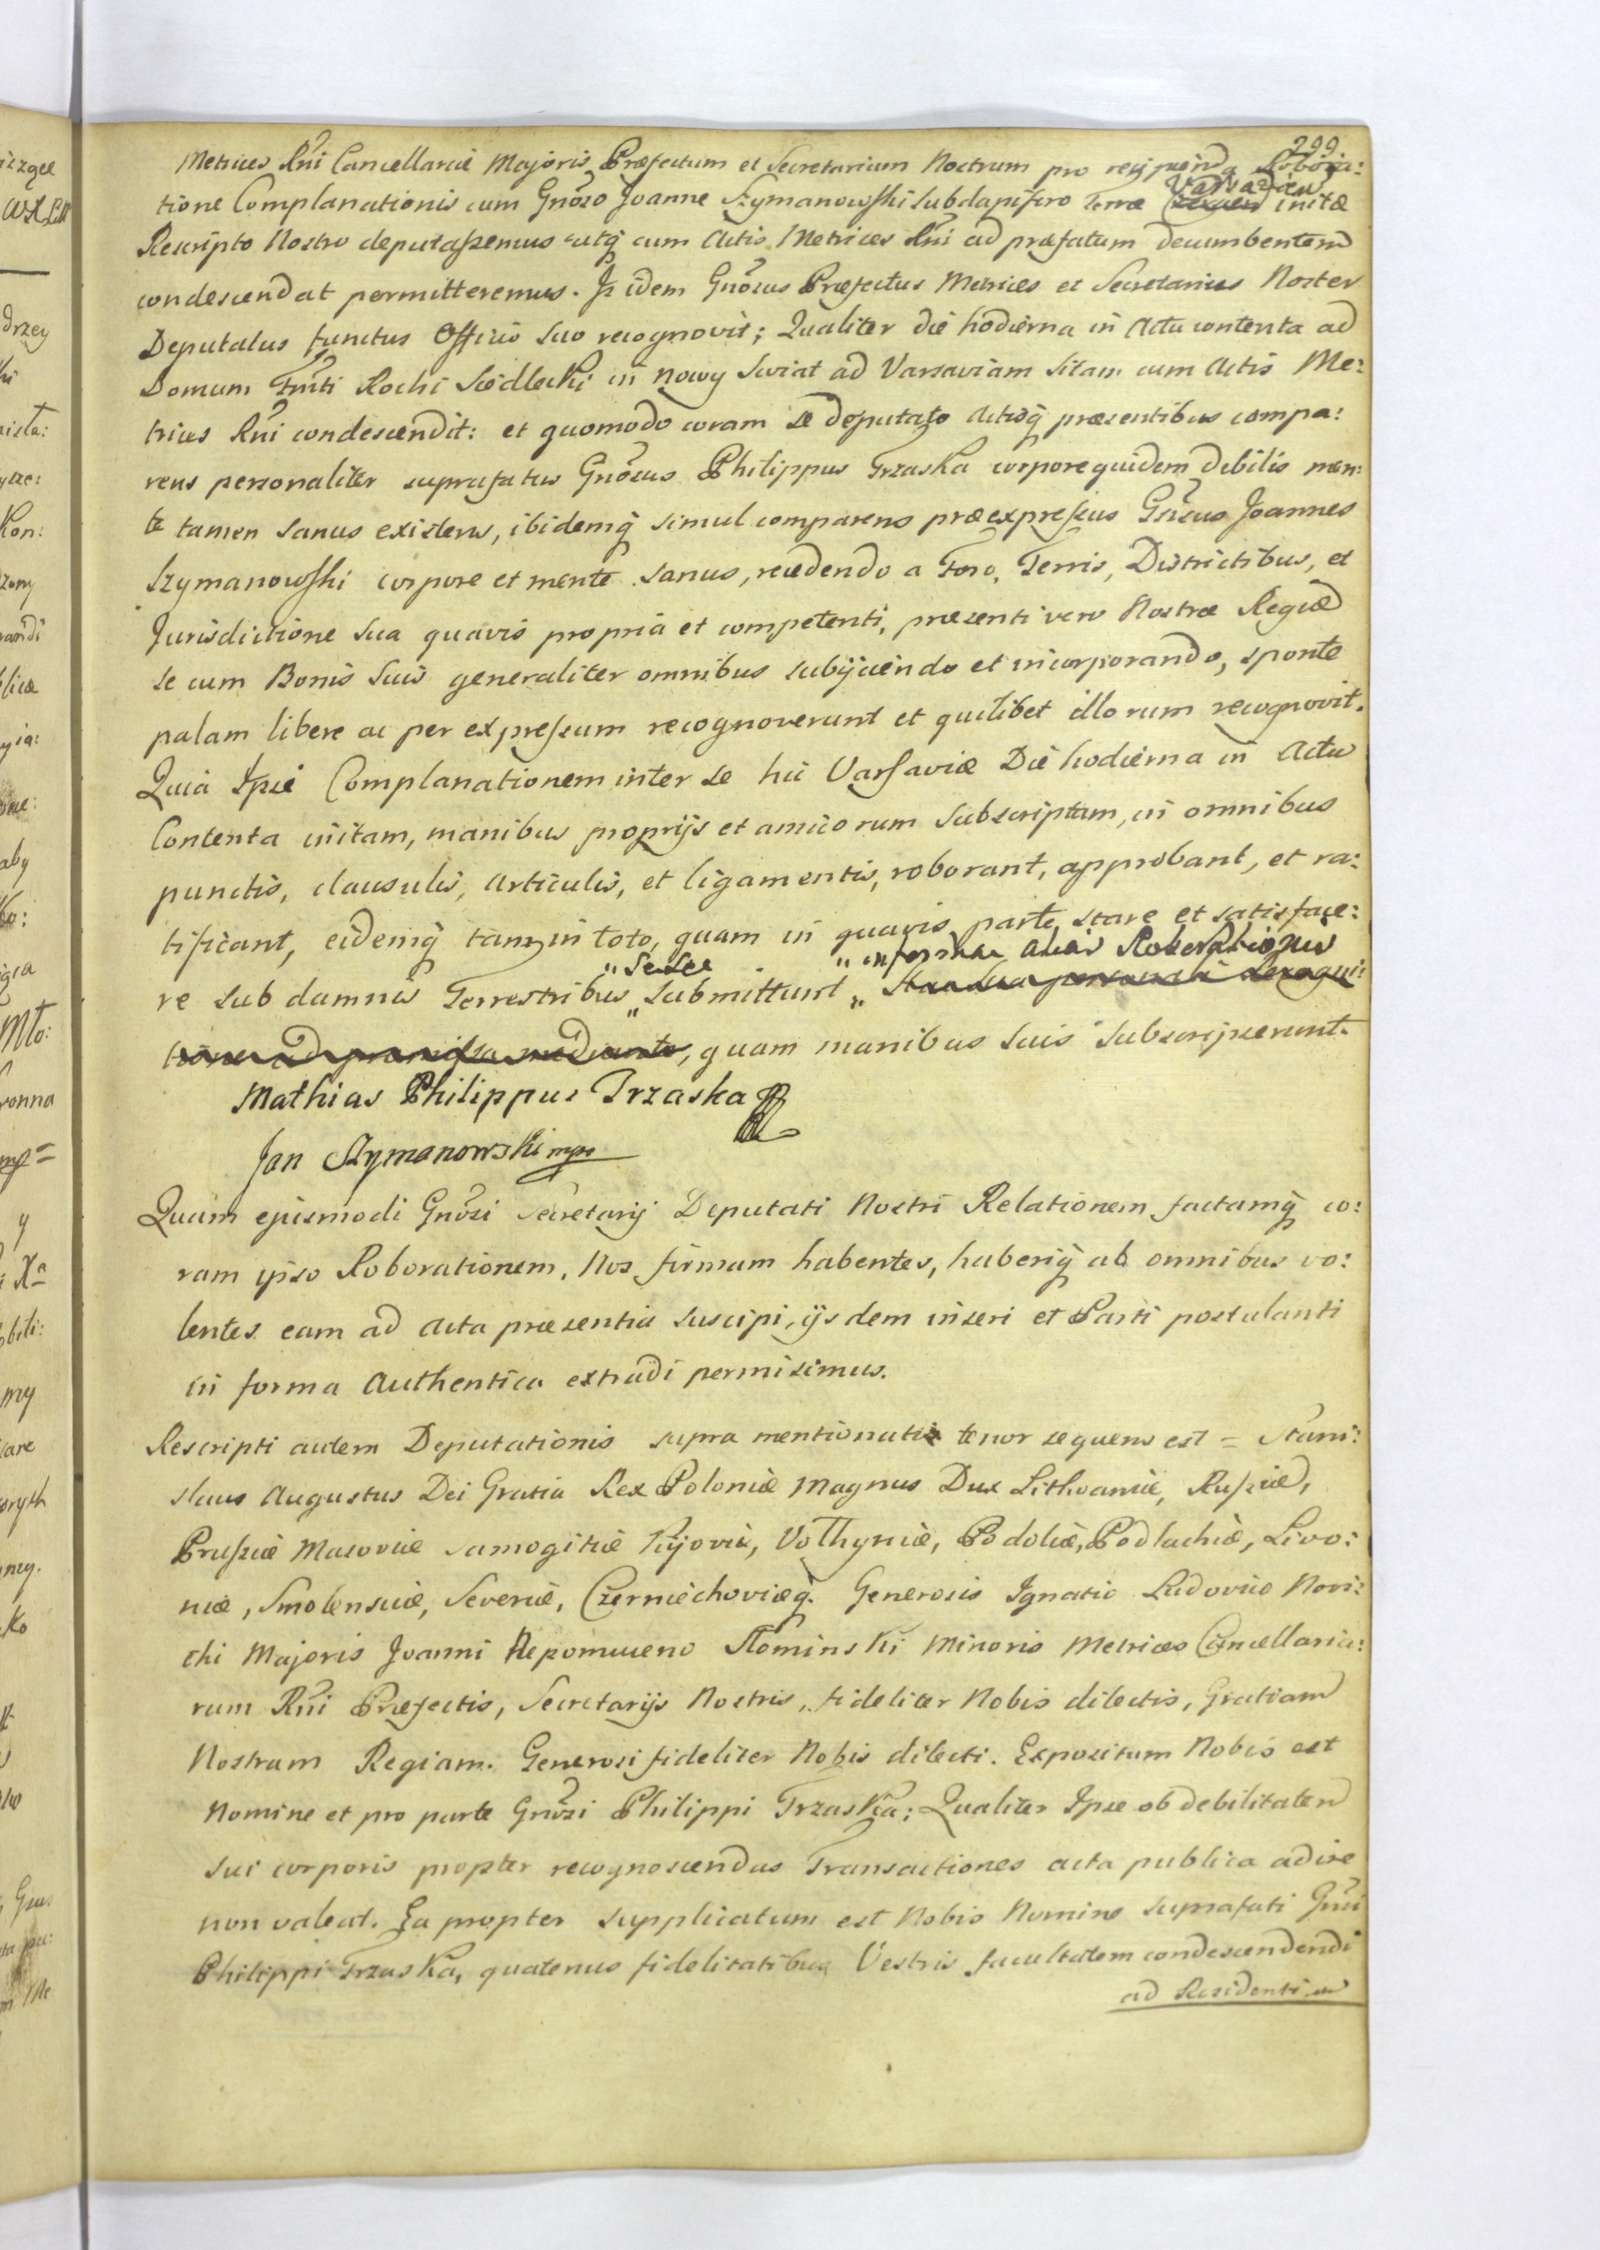 299.
Metrices Rni Cancellariæ Majoris Præfectum et Secretarium Nostrum pro Robora:
tione Complanationis cum Gnoso Joanne Szymanowski Subdapifero Terræ Varsavien initæ
Rescripto Nostro deputassemus utq cum Actis Metrices Rni ad præfatum decumbentem
condescendat permitteremus. Is idem Gnosus Præfectus Metrices et Secretarius Noster
Deputatus functus Officio suo recognovit; Qualiter die hodierna in Actu contenta ad
Domum Fmti Rochi Siedlecki in Nowy Swiat ad Varsaviam sitam cum Actis Me:
trices Rni condescendit: et quomodo coram se deputato Actisq præsentibus compa:
rens personaliter suprafatus Gnosus Philippus Trzaska corpore quidem debilis men:
te tamen sanus existens, ibidemq simul comparens præexpressus Gnosus Joannes
Szymanowski corpore et mente sanus, recedendo a Foro, Terris, Districtibus, et
Jurisdictione sua quavis propria et competenti, præsenti vero Nostræ Regiæ
se cum Bonis suis generaliter omnibus subijciendo et incorporando, sponte
palam libere ac per expressum recognoverunt et quilibet illorum recognovit.
Quia Ipsi Complanationem inter se hic Varsaviæ Die hodierna in Actu
Contenta initam, manibus proprijs et amicorum subscriptam, in omnibus
punctis, clausulis, articulis, et ligamentis, roborant, approbant, et ra:
tificant, eidemq tam in toto, quam in quavis parte stare et satisface:
"sese "in forma alias Roborationis
re sub damnis Terrestribus "submittunt "
, quam manibus suis subscripserunt.
Mathias Philippus Trzaska
Jan Szymanowski mpr
Quam ejusmodi Gnosi Secretarij Deputati Nostri Relationem factamq co:
ram ipso Roborationem, Nos firmam habentes, haberiq ab omnibus vo:
lentes eam ad acta præsentia suscipi, ijsdem inseri et Parti postulanti
in forma authentica extradi permisimus.
Rescripti autem Deputationis supra mentionati tenor sequens est = Stani:
slaus Augustus Dei Gratia Rex Poloniæ Magnus Dux Lithvaniæ, Russiæ,
Prussiæ Masoviæ Samogitiæ Kijoviæ, Volhyniæ, Podoliæ, Podlachiæ, Livo:
niæ, Smolensciæ, Severiæ, Czerniechoviæq. Generosis Ignatio Ludovico Nori:
chi Majoris Joanni Nepomuceno Slominski Minoris Metrices Cancellaria:
rum Rni Præfectis, Secretarijs Nostris, fideliter Nobis dilectis, Gratiam
Nostram Regiam. Generosi fideliter Nobis dilecti. Expositum Nobis est
Nomine et pro parte Gnosi Philippi Trzaska; Qualiter Ipse ob debilitatem
sui corporis propter recognoscendas Transactiones acta publica adire
non valeat. Ea propter supplicatum est Nobis Nomine suprafati Gnsi
Philippi Trzaska, quatenus fidelitatibus Vestris facultatem condescendendi
ad Residentiam